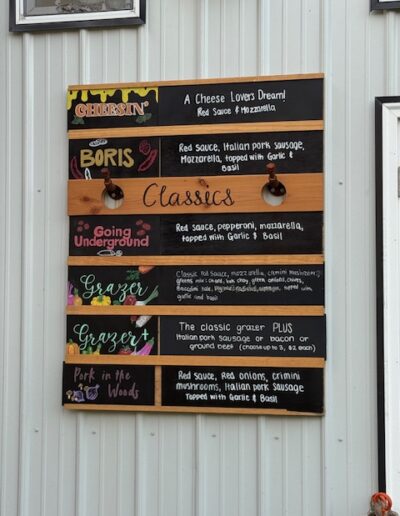 CHEESIN'
A Cheese Lovers Dream!
Red Sauce & Mozzarella
BORIS
Red sauce, Italian pork sausage,
Mozzarella, topped with Garlic &
Basil
Classics
Going
Underground
Red sauce, pepperoni, mozzarella,
topped with Garlic & Basil
Grazer
Classic red sauce, mozzarella, crimini mushrooms,
greens mix: chard, bok choy, green onions, chives,
Broccolini kale, topped with
garlic and basil
Grazer+
The classic grazer PLUS
Italian pork sausage or bacon or
ground beef (choose up to 3, $2 each)
Pork in the
Woods
Red sauce, Red onions, crimini
mushrooms, Italian pork sausage
Topped with Garlic & Basil